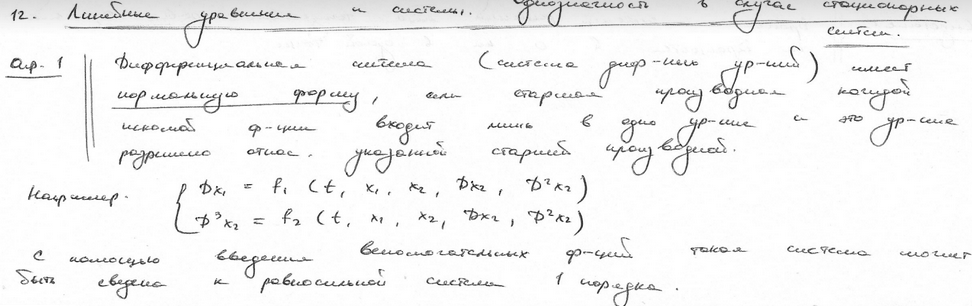 12. Линейные уравнения и системы. Однозначность в случае стационарных
систем.
Опр. 1 Дифференциальная система (система диф-ных ур-ний) имеет
нормальную форму, если старшая производная каждой
искомой ф-ции входит лишь в одно ур-ние и это ур-ние
разрешено относ. указанной старшей производной.
Например. { Dx₁ = f₁ (t, x₁, x₂, Dx₂, D²x₂)
D³x₂ = f₂ (t, x₁, x₂, Dx₂, D²x₂)
С помощью введения вспомогательных ф-ций такая система может
быть сведена к равносильной системе 1 порядка.